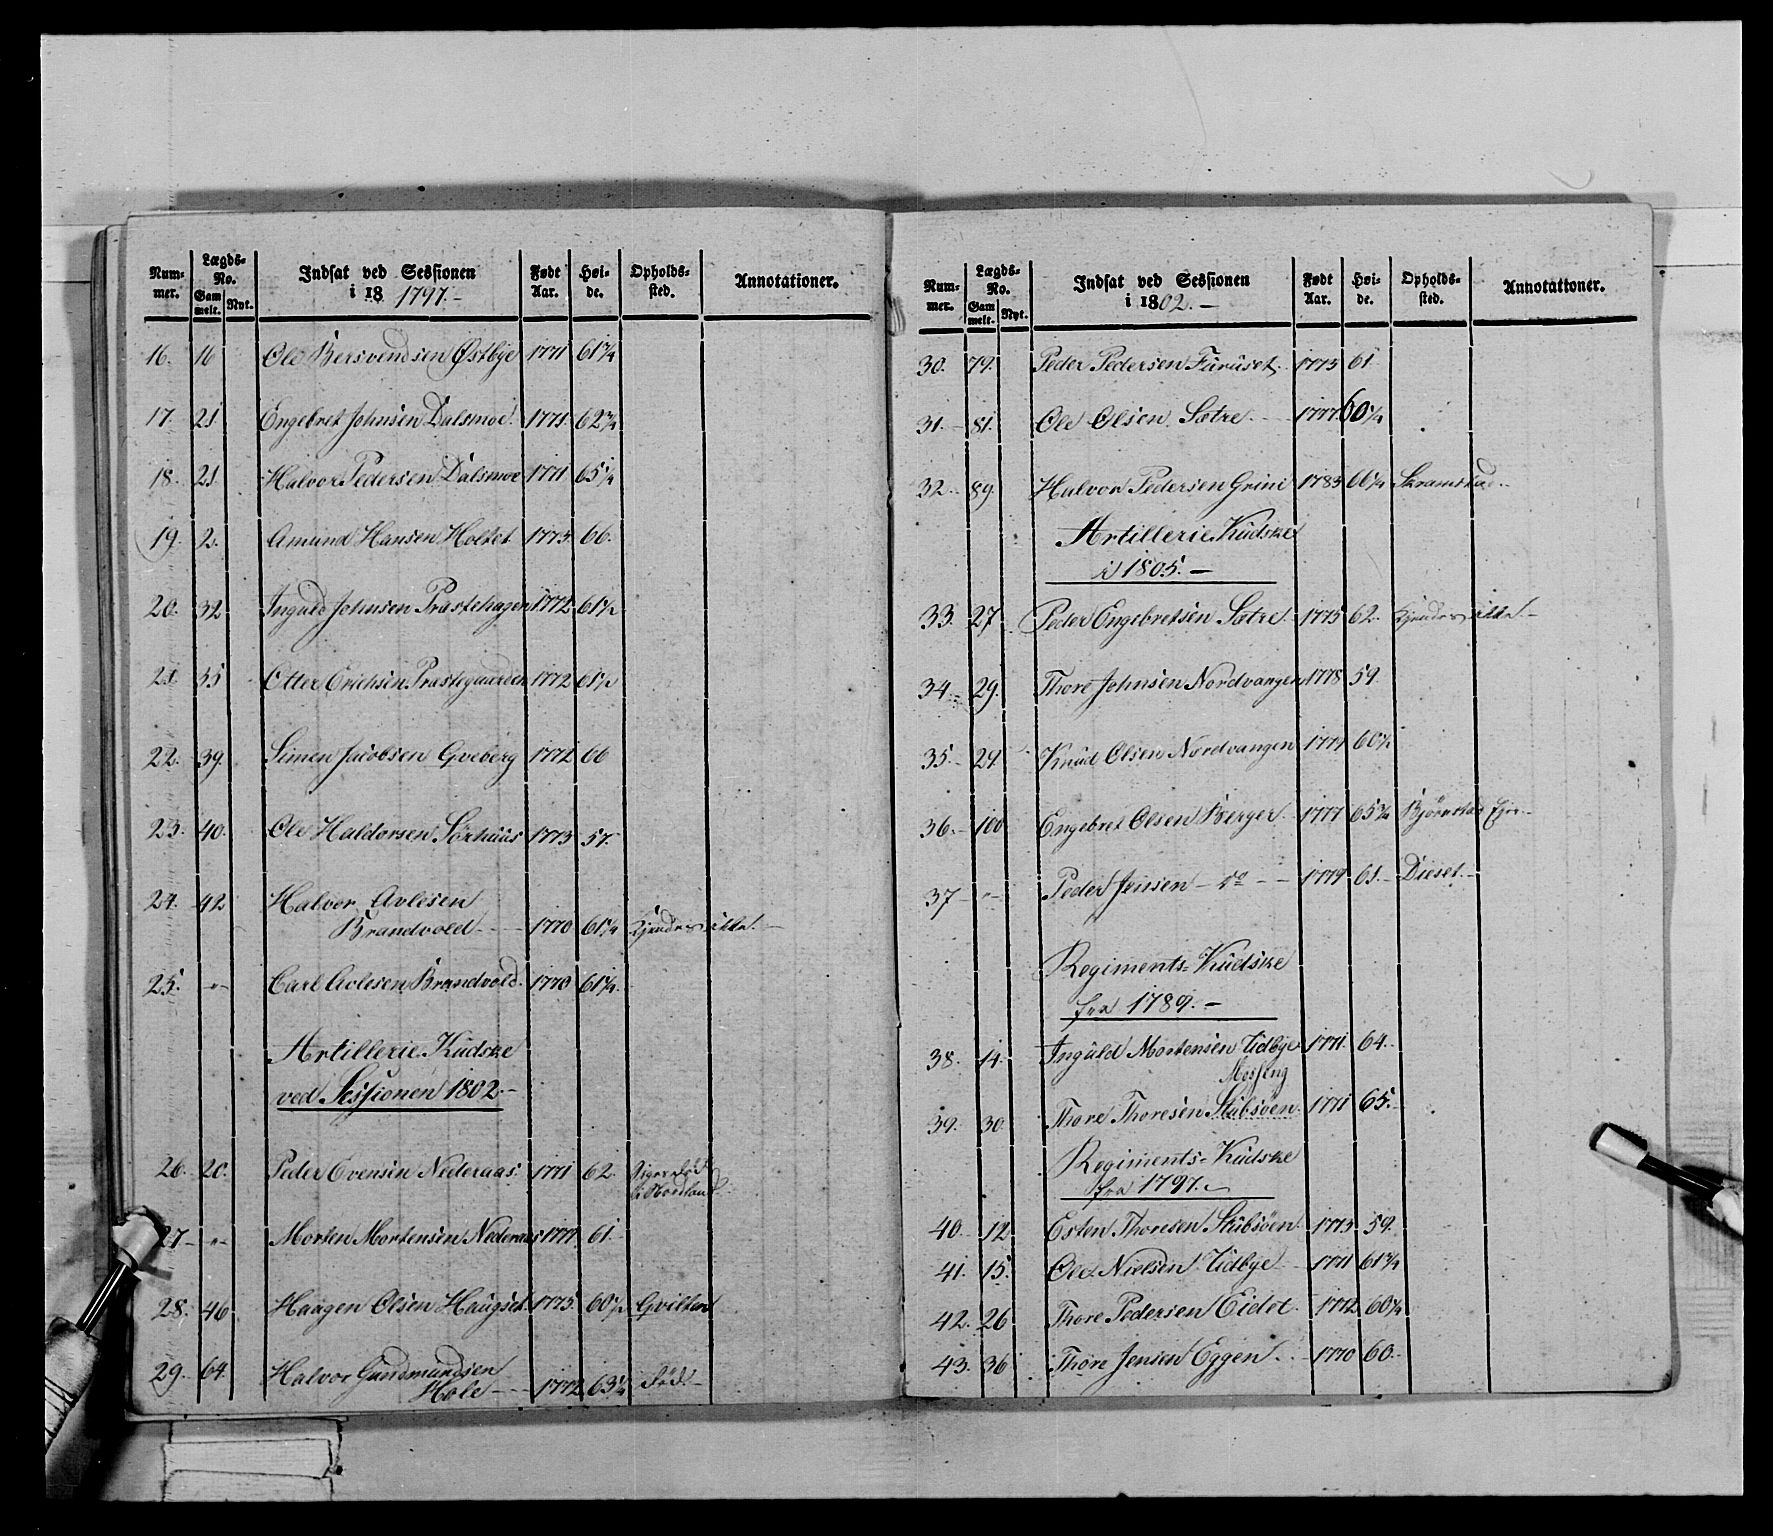 Num-mer. Lægds-No. Gam melt. Nyt. Indsat ved Sessionen i 18 1797.- Født Aar. Høi-de. Opholds-sted. Annotationer.
16. 16 Ole Bersvendsen Østbye 1771 61 3/4
17. 21 Engebret Johnsen Dalsmoe. 1771. 62 3/4
18. 21 Halvor Pedersen Dalsmoe 1771 65 1/4
19. 2. Amund Hansen Holtet 1773. 66.
20. 32 Ingula Johnsen Præstehagen 1772 61 1/2
21. 35 Otter Erichsen Præstegaarden 1772 61 1/2
22. 39. Simen Jacobsen Gveberg 1772 66
23. 40. Ole Haldorsen Sørhuus 1773 57.
24. 42 Halvor Avlesen
Brandvold - - 1770 61 1/4 Kjendes ikke. -
25. -"- Carl Avlesen Brandvold. 1770 61 1/4.
Artillerie Kudske
ved Sessionen 1802.-
26. 20. Peder Evensen Nederaas. 1771 62.
i Nordland
27 -"- Morten Mortensen Nederaas 1777. 61.
28. 46. Haagen Olsen Haugset. 1775. 60 1/2 Gvilten
29. 64. Halvor Gundmundsen
Hole - - - 1772 63 1/4 død. -
Num-mer. Lægds-No. Gam melt. Nyt. Indsat ved Sessionen i 1802.- Født Aar. Høi-de. Opholds-sted. Annotationer.
30. 79. Peder Pedersen Furuset. 1773 61.
31. 81. Ole Olsen Sætre - - 1777. 60 1/4
32. 89. Halvor Pedersen Grini 1783 66 1/4 Skramstad..
Artillerie Kudske
i 1805. -
33. 27 Peder Engebretsen Sætre. 1775 62. Kjendes ikke. -
34. 29. Thore Johnsen Nordvangen 1778 59.
35. 29. Knud Olsen Nordvangen 1777 60 1/2
36. 100 Engebret Olsen Berger. 1777 65 3/4 Bjørnstad Eier..
37 -"- Peder Jensen - do - - 1779 61. - Dieset. -
Regiments-Kudske
fra 1789. -
38. 14. Inguld Mortensen Udbye 1771. 64.
Mosseng
39. 30. Thore Thoresen Stubsøen. 1771 65. -
Regiments-Kudske
fra 1797. -
40. 12 Esten Thoresen Stubsøen. 1773 59.
41. 15. Ole Nielsen Udbye 1771 61 3/4
42. 26 Thore Pedersen Eidet. 1772 60 1/4
43. 36 Thore Jensen Eggen. . 1770 60.